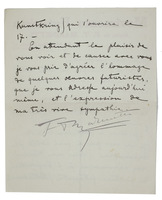 Kunstkring) qui s'ouvrira le
17. —
En attendant le plaisir de
vous voir et de causer avec vous
je vous prie d'agréer l'hommage
de quelques œuvres futuristes,
que je vous adresse aujourd'hui
même, et l'expression de
ma très vive sympathie